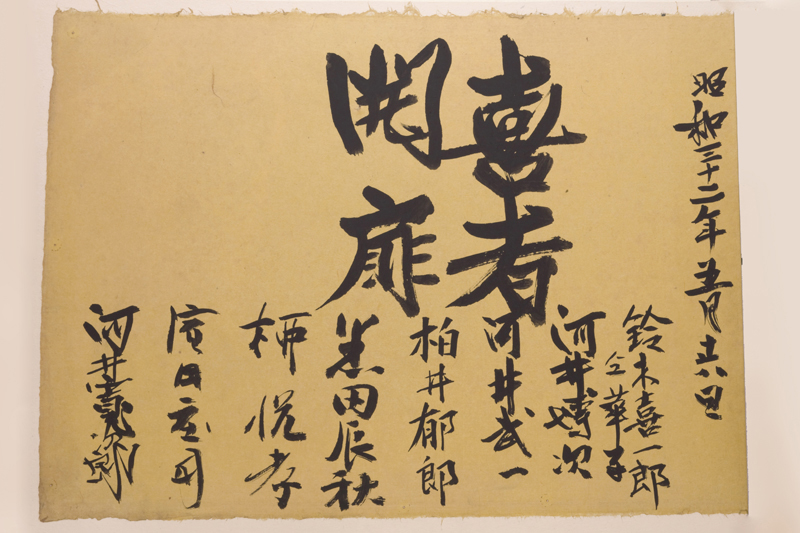 昭和三十二年五月十六日
喜者
開扉
鈴木喜一郎
仝華子
河井博次
河井武一
柏井郁郎
黒田辰秋
柳悦孝
濱田庄司
河井寛次郎